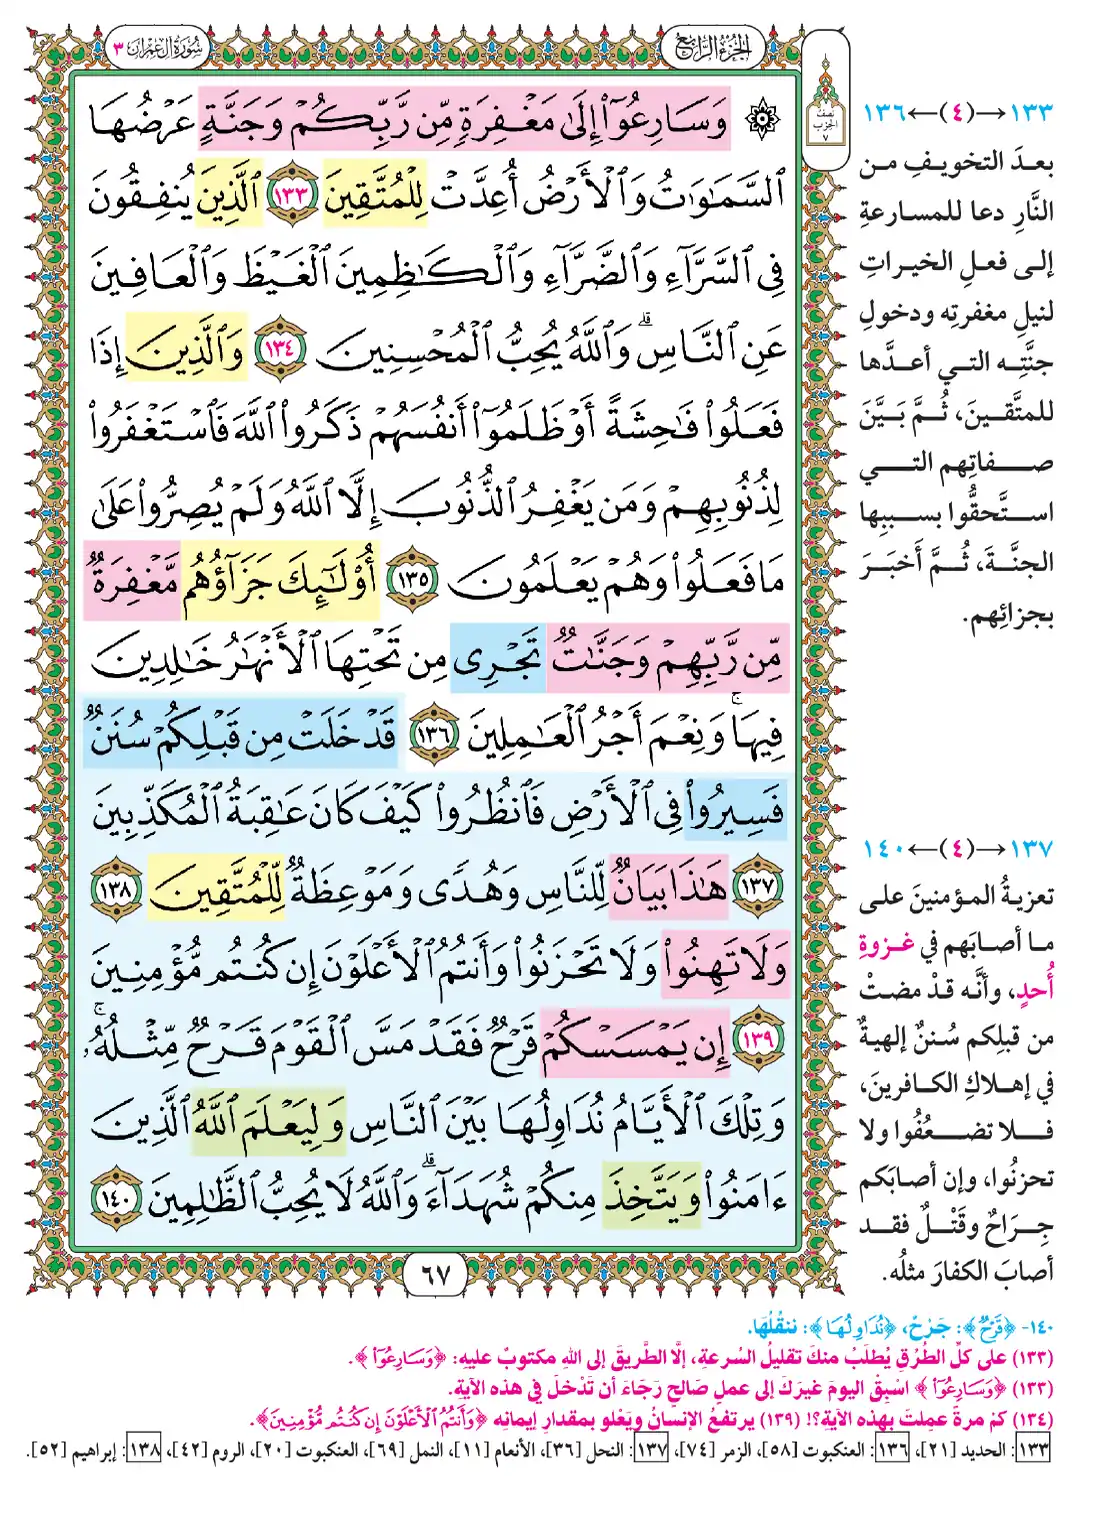 الجزء الرابع
سورة آل عمران ٣
نصف
الحزب
٧
۞ وَسَارِعُوٓا۟ إِلَىٰ مَغْفِرَةٍ مِّن رَّبِّكُمْ وَجَنَّةٍ عَرْضُهَا
ٱلسَّمَـٰوَٰتُ وَٱلْأَرْضُ أُعِدَّتْ لِلْمُتَّقِينَ ١٣٣ ٱلَّذِينَ يُنفِقُونَ
فِى ٱلسَّرَّآءِ وَٱلضَّرَّآءِ وَٱلْكَـٰظِمِينَ ٱلْغَيْظَ وَٱلْعَافِينَ
عَنِ ٱلنَّاسِ ۗ وَٱللَّهُ يُحِبُّ ٱلْمُحْسِنِينَ ١٣٤ وَٱلَّذِينَ إِذَا
فَعَلُوا۟ فَـٰحِشَةً أَوْ ظَلَمُوٓا۟ أَنفُسَهُمْ ذَكَرُوا۟ ٱللَّهَ فَٱسْتَغْفَرُوا۟
لِذُنُوبِهِمْ وَمَن يَغْفِرُ ٱلذُّنُوبَ إِلَّا ٱللَّهُ وَلَمْ يُصِرُّوا۟ عَلَىٰ
مَا فَعَلُوا۟ وَهُمْ يَعْلَمُونَ ١٣٥ أُو۟لَـٰٓئِكَ جَزَآؤُهُم مَّغْفِرَةٌ
مِّن رَّبِّهِمْ وَجَنَّـٰتٌ تَجْرِى مِن تَحْتِهَا ٱلْأَنْهَـٰرُ خَـٰلِدِينَ
فِيهَا ۚ وَنِعْمَ أَجْرُ ٱلْعَـٰمِلِينَ ١٣٦ قَدْ خَلَتْ مِن قَبْلِكُمْ سُنَنٌ
فَسِيرُوا۟ فِى ٱلْأَرْضِ فَٱنظُرُوا۟ كَيْفَ كَانَ عَـٰقِبَةُ ٱلْمُكَذِّبِينَ
١٣٧ هَـٰذَا بَيَانٌ لِّلنَّاسِ وَهُدًى وَمَوْعِظَةٌ لِّلْمُتَّقِينَ ١٣٨
وَلَا تَهِنُوا۟ وَلَا تَحْزَنُوا۟ وَأَنتُمُ ٱلْأَعْلَوْنَ إِن كُنتُم مُّؤْمِنِينَ
١٣٩ إِن يَمْسَسْكُمْ قَرْحٌ فَقَدْ مَسَّ ٱلْقَوْمَ قَرْحٌ مِّثْلُهُۥ ۚ
وَتِلْكَ ٱلْأَيَّامُ نُدَاوِلُهَا بَيْنَ ٱلنَّاسِ وَلِيَعْلَمَ ٱللَّهُ ٱلَّذِينَ
ءَامَنُوا۟ وَيَتَّخِذَ مِنكُمْ شُهَدَآءَ ۗ وَٱللَّهُ لَا يُحِبُّ ٱلظَّـٰلِمِينَ ١٤٠
٦٧
١٣٣→(٤)←١٣٦
بعدَ التخويفِ من
النَّارِ دعا للمسارعةِ
إلى فعلِ الخيراتِ
لنيلِ مغفرتِه ودخولِ
جنَّتِه التي أعدَّها
للمتَّقينَ، ثُمَّ بَيَّنَ
صفاتِهم التي
استَّحقُّوا بسببِها
الجنَّةَ، ثُمَّ أَخبَرَ
بجزائِهم.
١٣٧→(٤)←١٤٠
تعزيةُ المؤمنينَ على
ما أصابَهم في غزوةِ
أُحدٍ، وأنَّه قدْ مضتْ
من قبلِكم سُننٌ إلهيةٌ
في إهلاكِ الكافرينَ،
فلا تضعُفُوا ولا
تحزنُوا، وإن أصابَكم
جِراحٌ وقَتْلٌ فقد
أصابَ الكفارَ مثلُه.
١٤٠- ﴿قَرْحٌ﴾: جَرْحٌ، ﴿نُدَاوِلُهَا﴾: ننقُلُهَا.
(١٣٣) على كلِّ الطُرُقِ يُطلَبُ منكَ تقليلُ السُرعةِ، إلَّا الطَّريقَ إلى اللهِ مكتوبٌ عليهِ: ﴿وَسَارِعُوٓا۟﴾.
(١٣٣) ﴿وَسَارِعُوٓا۟﴾ اسبِقْ اليومَ غيرَكَ إلى عملٍ صَالحٍ رَجَاءَ أن تَدْخلَ في هذه الآيةِ.
(١٣٤) كمْ مرةً عمِلتَ بهذه الآيةِ؟! (١٣٩) يرتفعُ الإنسانُ ويَعْلو بمقدارِ إيمانِه ﴿وَأَنتُمُ ٱلْأَعْلَوْنَ إِن كُنتُم مُّؤْمِنِينَ﴾.
١٣٣: الحديد [٢١]، ١٣٦: العنكبوت [٥٨]، الزمر [٧٤]، ١٣٧: النحل [٣٦]، الأنعام [١١]، النمل [٦٩]، العنكبوت [٢٠]، الروم [٤٢]، ١٣٨: إبراهيم [٥٢].